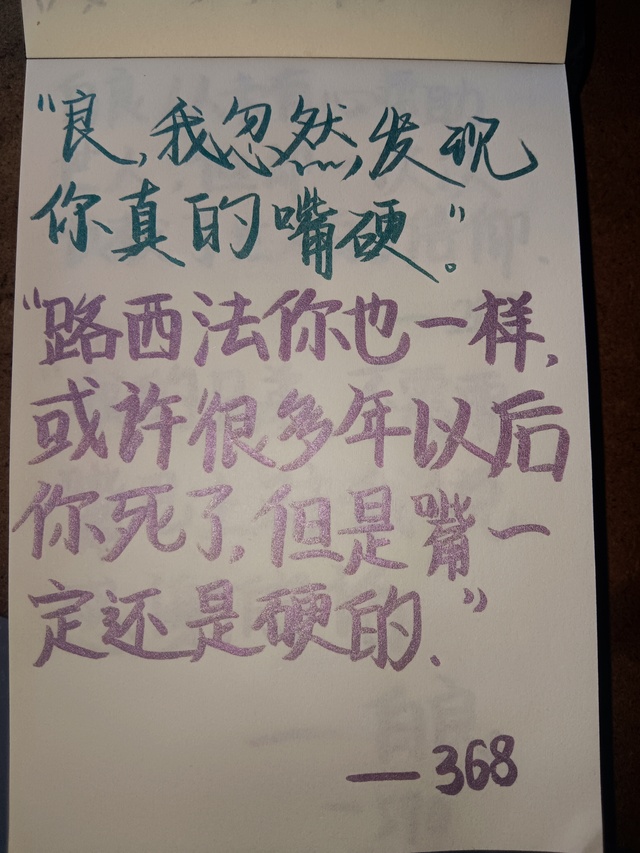 “良,我忽然,发现
你真的嘴硬”。
“路西法你也一样,
或许很多年以后
你死了,但是嘴一
定还是硬的.”
—368